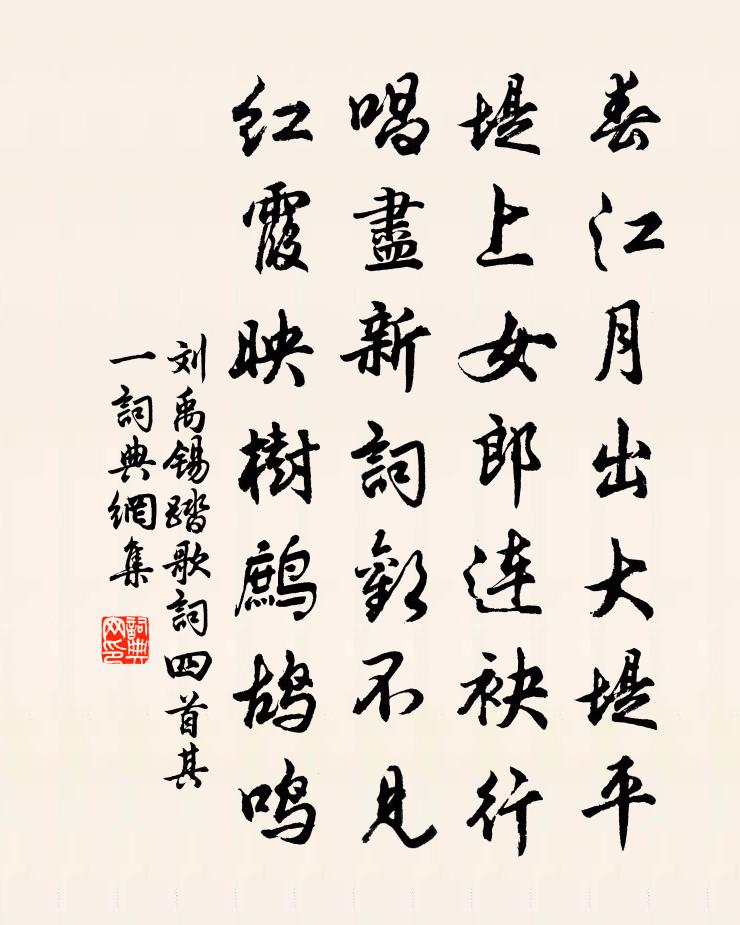 春江月出大堤平
堤上女郎連袂行
唱盡新詞歡不見
紅霞映樹鷓鴣鳴
刘禹锡踏歌詞四首其
一詞典網集
詞典
网印